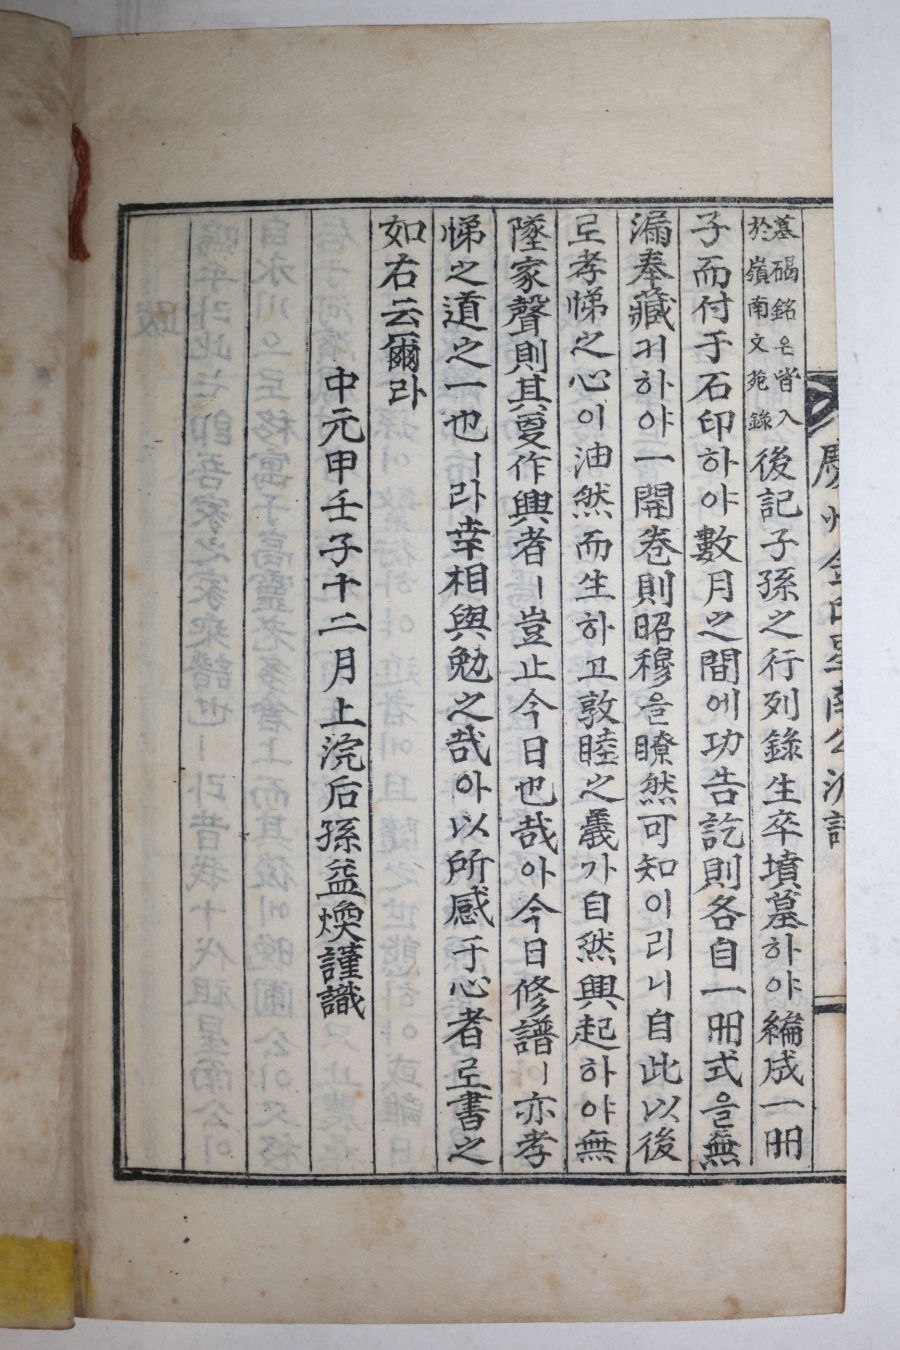 慶州金氏星南公派譜
墓碣銘은皆入
於嶺南文苑錄
後記子孫之行列錄生卒墳墓하야編成一冊
子而付于石印하야數月之間에功告訖則各自一冊式을無
漏奉藏커하야一開卷則昭穆을瞭然可知이리니自此以後
로孝悌之心이油然而生하고敦睦之義가自然興起하야無
墜家聲則其夏作興者ㅣ豈止今日也哉아今日修譜ㅣ亦孝
悌之道之一也ㅣ라幸相與勉之哉아以所感于心者로書之
如右云爾라
中元甲壬子十二月上浣后孫益煥謹識